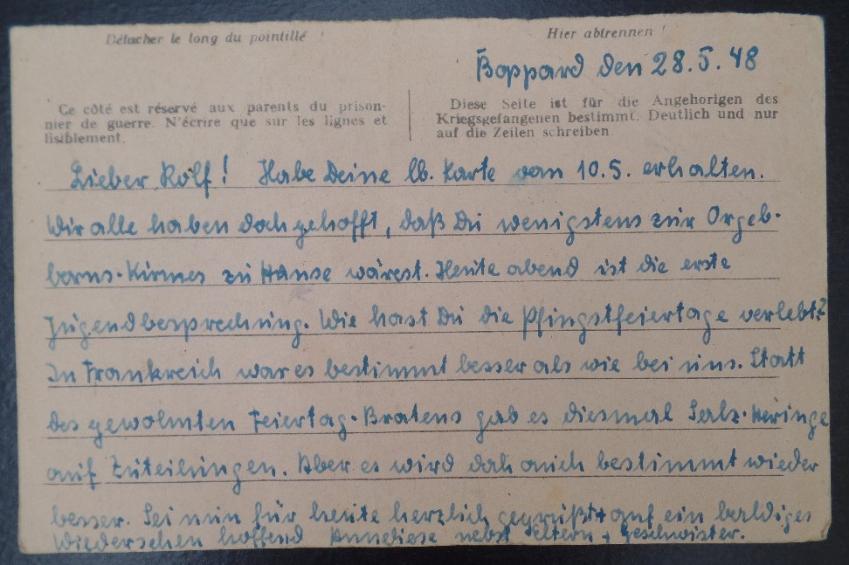 Détacher le long du pointillé !
Hier abtrennen !
Boppard den 28.5.48
Ce côté est réservé aux parents du prison-
nier de guerre. N'écrire que sur les lignes et
lisiblement.
Diese Seite ist für die Angehorigen des
Kriegsgefangenen bestimmt. Deutlich und nur
auf die Zeilen schreiben
Lieber Rolf! Habe Deine lb. Karte vom 10.5. erhalten.
Wir alle haben doch gehofft, daß Du wenigstens zur Orgeb-
borns-Kirmes zu Hause wärest. Heute abend ist die erste
Jugendbesprechung. Wie hast Du die Pfingstfeiertage verlebt?
In Frankreich war es bestimmt besser als wie bei uns. Statt
des gewohnten Feiertag-Bratens gab es diesmal Salz-Heringe
auf Zuteilungen. Aber es wird doch auch bestimmt wieder
besser. Sei nun für heute herzlich gegrüßt + auf ein baldiges
Wiedersehen hoffend Anneliese nebst Eltern + Geschwister.